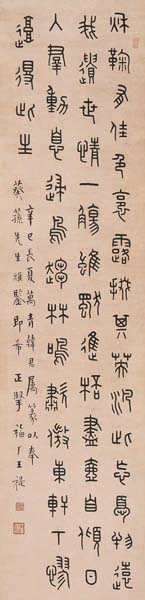 秋鞠有佳色裛露掇其英汎此忘憂物遠
我遺世情一觴雖獨進桮盡壺自傾日
入羣動息歸鳥趨林鳴歗傲東軒下聊
復得此生
辛巳長夏萬青韓君屬篆以奉
葵蓀先生雅鑒即希 正掔 福厂王禔